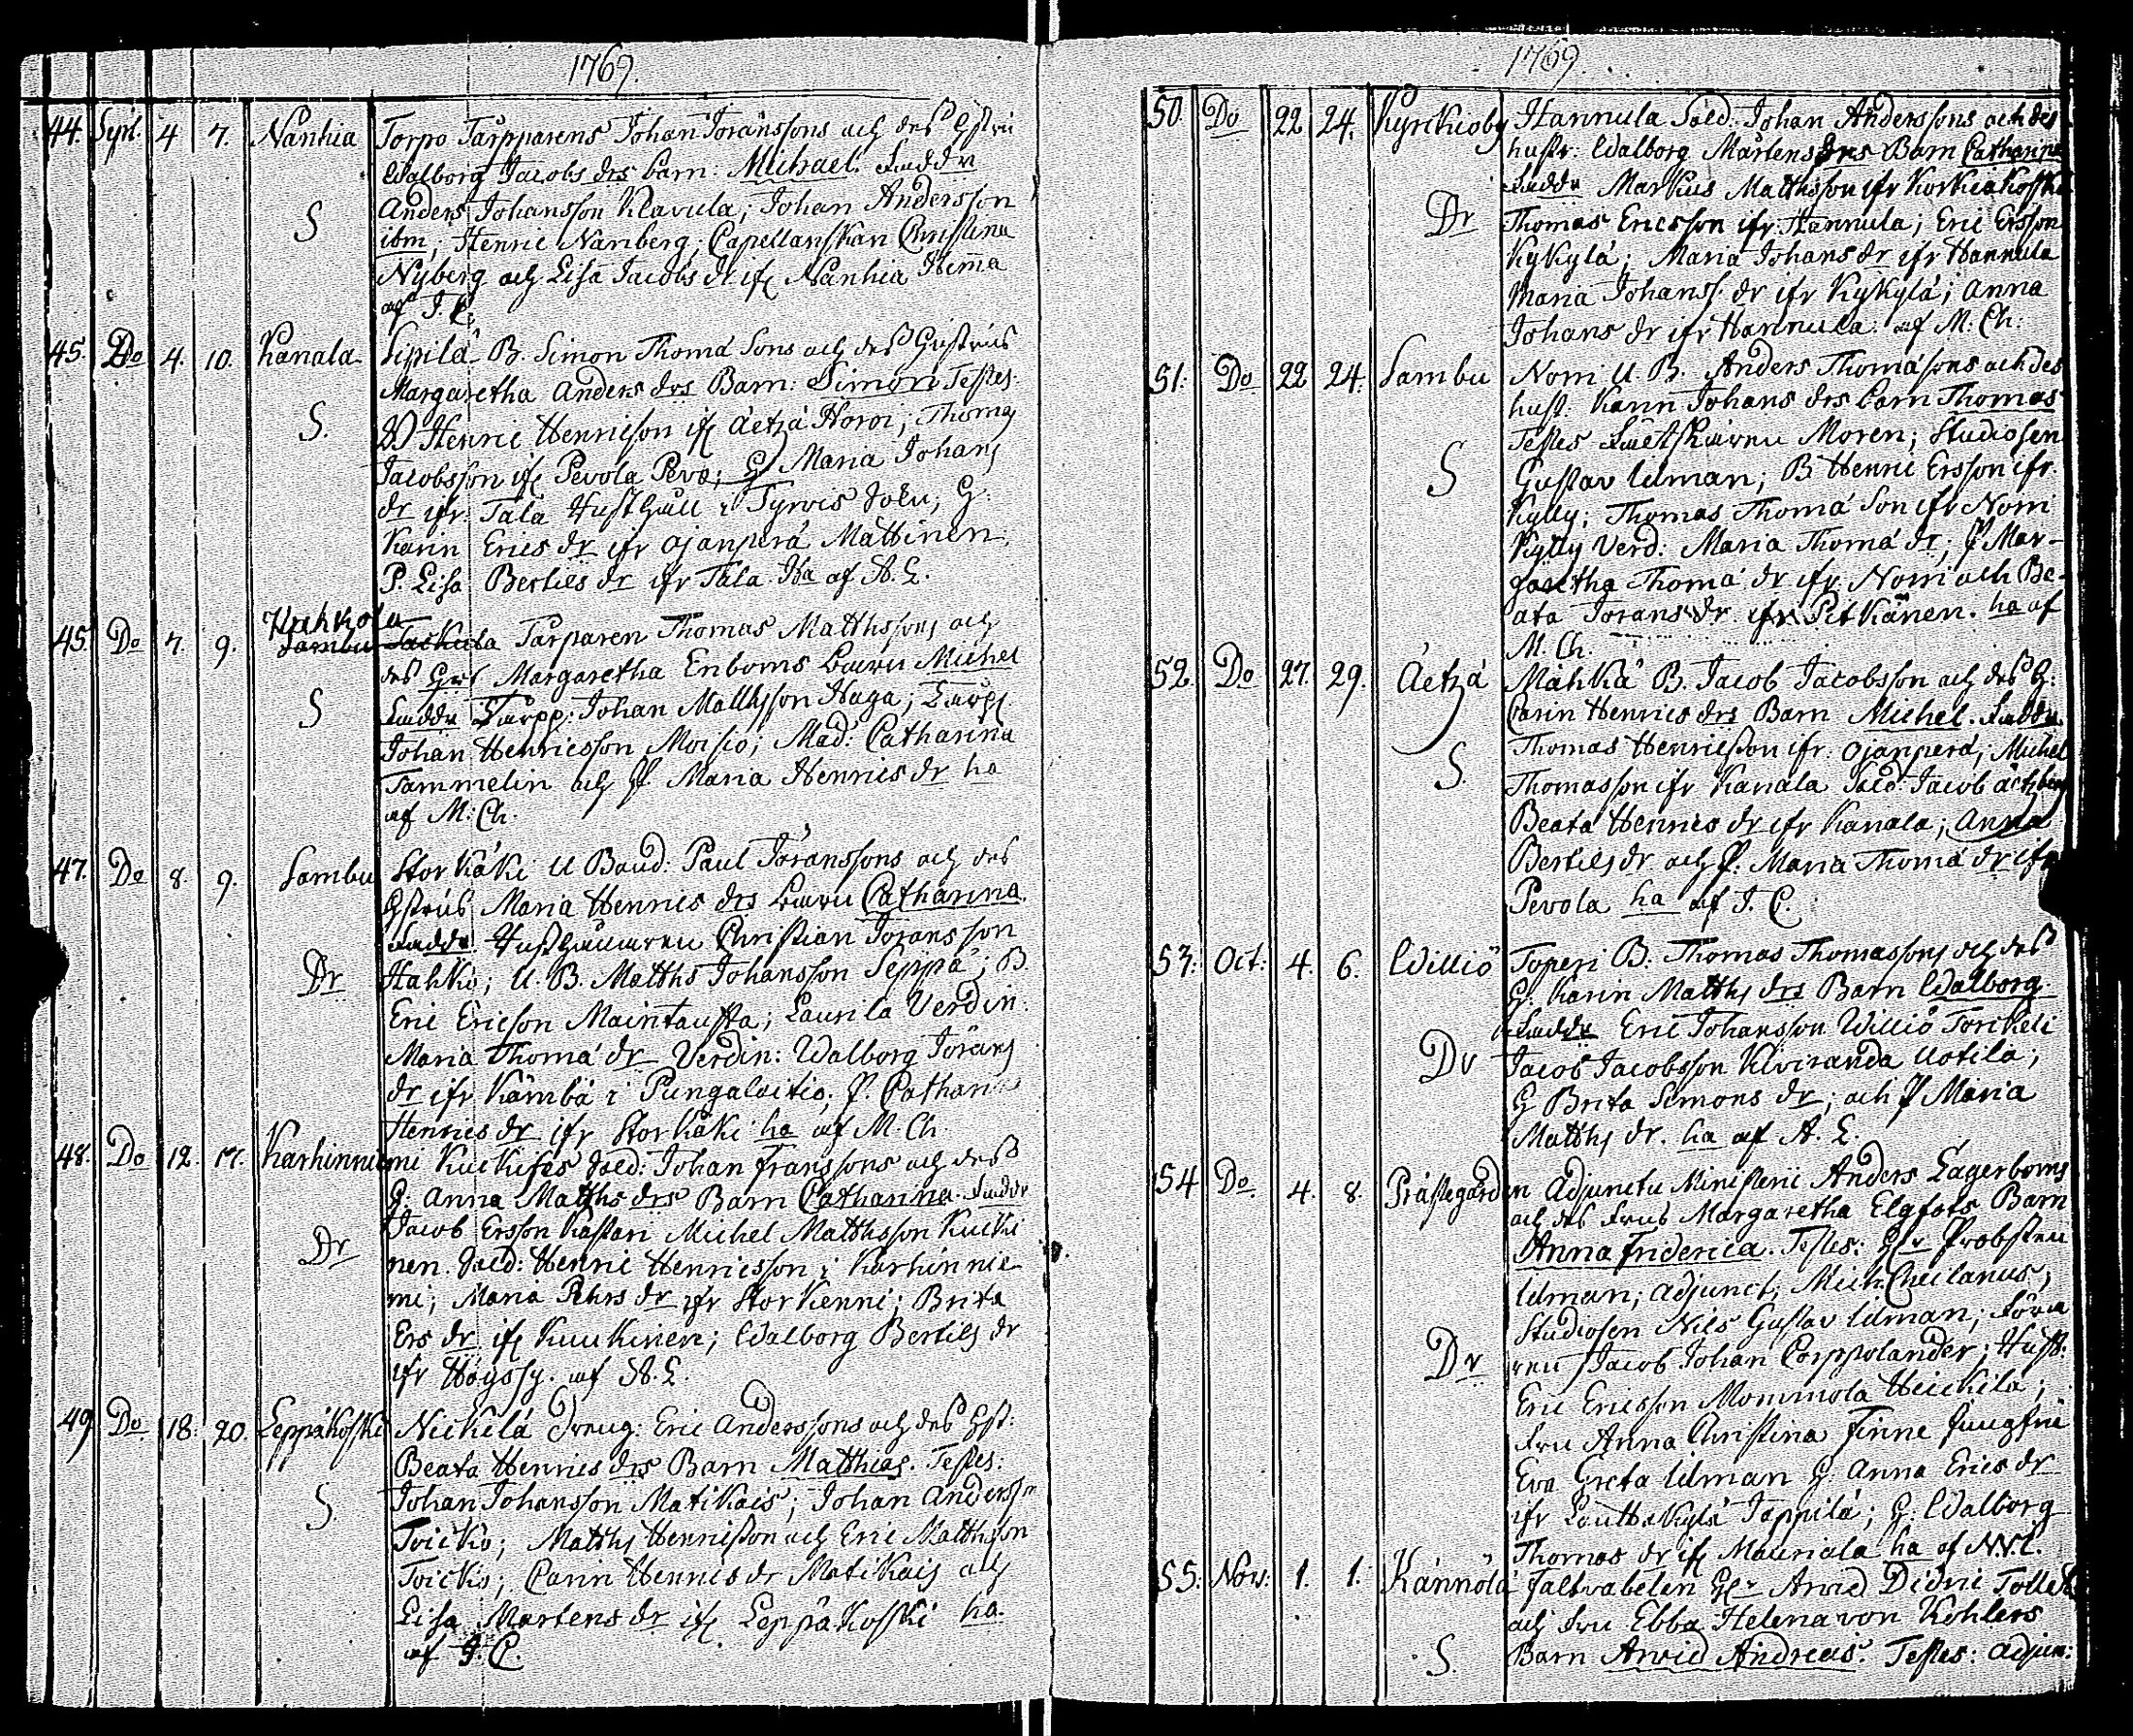 1769.
44. Sept. 4 7. Nanhia Torpo Tarpparens Johan Joranssons och des hstru
Walborg Jacobs drs barn: Michael. Faddr
S Anders Johansson Klavula; Johan Andersson
ibm; Henric Nanberg; Capellanskan Christina
Nyberg och Lisa Jacobs dr ifr Nanhia Hema
af J. C.
45. Do 4. 10. Kanala Sipilä B. Simon Thomä Sons och des Hustrus
Margaretha Anders drs Barn: Simon Testes.
S. D Henric Henricson ifr Äetzä Horoi; Thomas
Jacobsson ifr Pevola Pevo; G Maria Johans
dr ifr. Tala Husthåll i Tyrvis Sokn; G:
Karin Erics dr ifr Ojanperä Mattinen;
P. Lisa Bertils dr ifr Tala Ha af A. L.
Hahkola
45. Do 7. 9. Sambu Tarparen Thomas Matthssons och
des Margaretha Enboms barn Michel
S Faddr Tarpp: Johan Matthsson Haga; Tarpp.
Johan Henricsson Moisio; Mad: Catharina
Tammelin och P Maria Henrics dr ha
af M: Ch.
47. Do 8. 9. Sambu Stor Käki U Baud: Paul Jöranssons och des
hstrus Maria Henrics drs barn Catharina.
Faddr Christian Joransson
Dr Hahko; U. B. Matths Johansson Seppä; B
Eric Ericson Maintausta; Laurila Verdin:
Maria Thomä dr Verdin: Walborg Jörans
dr ifr Kämbä i Pungalaitio; P. Cathar
Henrics dr ifr Storkäki ha af M. Ch
48. Do 12. 17. Karhinniemi Kuckises Sold: Johan Franssons och des
G: Anna Matths drs Barn Catharina. Faddr
Jacob Ersson Kastari Michel Matthsson Kucki
Dr nen. Sold: Henric Henricsson i Karhinnie
mi; Maria Pehrs dr ifr Storkenni; Brita
Ers dr ifr Kuukinen; Walborg Bertils dr
ifr Höyssy. af A. L.
49 Do 18. 20. Leppäkoski Nickilä Dreng: Eric Anderssons och des hst:
Beata Henrics drs Barn Matthias. Testes:
S. Johan Johansson Matikais; Johan Andersson
Toicko; Matths Henricsson och Eric Matthsson
Toicko; Carin Henrics dr Matikais och
Lisa Martens dr ifr Leppäkoski ha.
af J. C.
1769.
50. Do 22 24. Kyrckioby Hannula Sold. Johan Anderssons och des
hustr: Walborg Mårtens drs Barn Catharina
Faddr Markus Matthsson ifr Korkiakoski
Dr Thomas Ericsson ifr Hannula; Eric Ersson
Kykylä; Maria Johans dr ifr Hannula
Maria Johanss. dr ifr Kykylä; Anna
Johans dr ifr Hannula. af M: Ch:
51: Do 22 24. Sambu Norri U. B. Anders Thomäsons och Des
hust: Karin Johans drs barn Thomas
Testes Moren; Studiosen
S Gustav Idman; B Henric Ersson ifr.
Kylly; Thomas Thomä Son ifr Norri
Kylly Verd: Maria Thomä dr; P Mar-
garetha Thomä dr ifr. Norri och Be-
ata Jorans dr ifr Pitkänen. ha af
M. Ch.
52. Do 27. 29. Äetzä Mähkä B. Jacob Jacobsson och des G:
Carin Henrics drs Barn Michel. Faddr
Thomas Henricsson ifr. Ojanperä; Michel
S. Thomasson ifr Kanala Sold. Jacob Aetzberg
Beata Henrics dr ifr Kanala; Anna
Bertils dr och P. Maria Thomä dr ifr
Pevola ha af J. C.
53: Oct: 4. 6. Williö Toperi B. Thomas Thomassons och des
G. Karin Matths drs Barn Walborg.
Faddr Eric Johansson Williö Torckeli
Dr Jacob Jacobsson Kiviranda Uotila;
G Brita Simons dr; och P Maria
Matths dr. ha af A. L.
54 Do 4. 8. Prästegården Adjunctu Ministerii Anders Lagerboms
och des Frus Margaretha Elgfots Barn
Anna Friderica. Testes: Hr Probsten
Idman; Adjunct: Mich: Cheilanus;
Studiosen Nils Gustav Idman;
Dr Jacob Johan Corppolander; Hust.
Eric Ericsson Mommola Heickilä;
Fru Anna Christina Finne Jungfru
Ewa Greta Idman G: Anna Erics dr
ifr Lauttakylä Jappilä; G: Walborg
Thomas dr ifr Mauriala ha af N. I.
55: Nov: 1. 1. Kännölä Faltvabelen Hr Arvid Didric Tollet
och Fru Ebba Helena von Kohlers
S. Barn Arvid Andreas. Testes: Adjun: